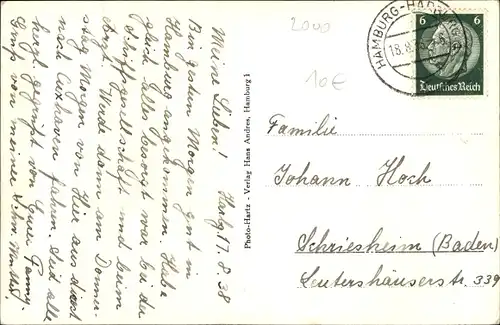 Meine Lieben! Hbg. 17.8.38
Bin gestern Morgen gut in
Hamburg angekommen. Habe
gleich alles besorgt war bei der
Schiffgesellschaft und beim
Arzt. Werde dann am Donner-
stag Morgen von Hier aus direkt
nach Cuxhaven fahren. Seid alle
herzl. gegrüßt von Eurer Fanny.
Gruß von meiner
Photo-Hartz - Verlag Hans Andres, Hamburg 1
2000
10€
HAMBURG-
18.8.
6 6
Deutsches Reich
Familie
Johann Hoch
Schriesheim (Baden)
Leutershäuserstr. 339